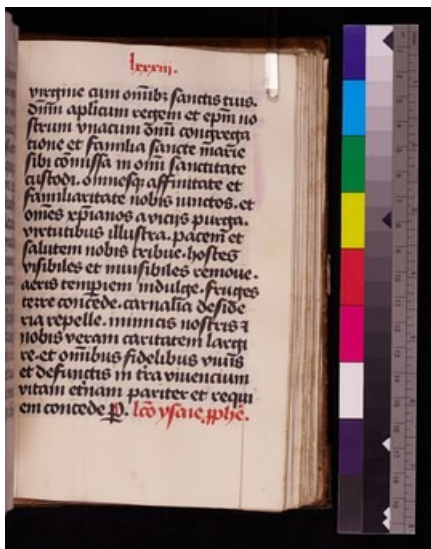 lxxxiii.
virgine cum om̄ibꝫ sanctis tuis.
dn̄m aplicum regem et ep̄m no
strum vnacum om̄i congrega
tione et familia sancte marie
sibi cōmissa in om̄i sanctitate
custodi. omnesqꝫ affinitate et
familiaritate nobis iunctos. et
om̄es xp̄ianos a viciis purga.
virtutibus illustra. pacem et
salutem nobis tribue. hostes
visibiles et inuisibiles remoue.
aeris temp̄iem indulge. fruges
terre concede. carnalia deside
ria repelle. inimicis nostris ⁊
nobis veram caritatem largi
re. et om̄ibus fidelibus viuis
et defunctis in tr̄a viuencium
vitam et̄nam pariter et requi
em concede P̄. lc̄o ysaie ꝓphe.